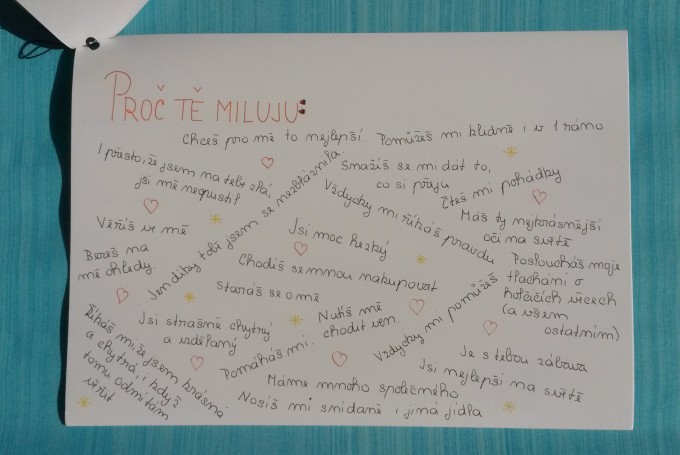 PROČ TĚ MILUJU:
Chceš pro mě to nejlepší.
Pomůžeš mi klidně i v 1 ráno
I přesto, že jsem na tebe zlá,
jsi mě neopustil
Smažíš se mi dát to,
co si přeju
Čteš mi pohádky
Jen díky tobě jsem se nezbláznila
Vždycky mi říkáš pravdu
Máš ty nejkrásnější
oči na světě
Věříš ve mě
Jsi moc hezký
Bereš na
mě ohledy.
Chodíš se mnou nakupovat
Posloucháš moje
tlachání o
holčičích věcech
(a všem
ostatním)
Staráš se o mě
Nutíš mě
chodit ven.
Vždycky mi pomůžeš
Říkáš mi, že jsem krásná
a chytrá, i když
tomu odmítám
věřit
Jsi strašně chytrý
a vzdělaný
Pomáháš mi.
Je s tebou zábava
Jsi nejlepší na světě
Máme mnoho společného
Nosíš mi snídaně i jiná jídla